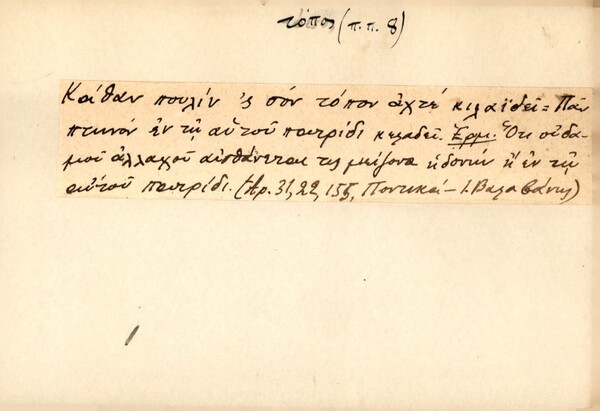 τόπος (π.π. 8)
Κάθαν πουλίν 'ς σόν τόπον ἀχτέ κιλαϊδεῖ = Πᾶν
πτηνόν ἐν τῇ αὑτοῦ πατρίδι κελαδεῖ. Ἑρμ. Ὅτι οὐδα-
μοῦ ἀλλαχοῦ αἰσθάνεται τις μείζονα ἡδονήν ἤ ἐν τῇ
αὑτοῦ πατρίδι. (Ἀρ. 31, 22, 155, Ποντικά - Ι. Βαλαβάνης)